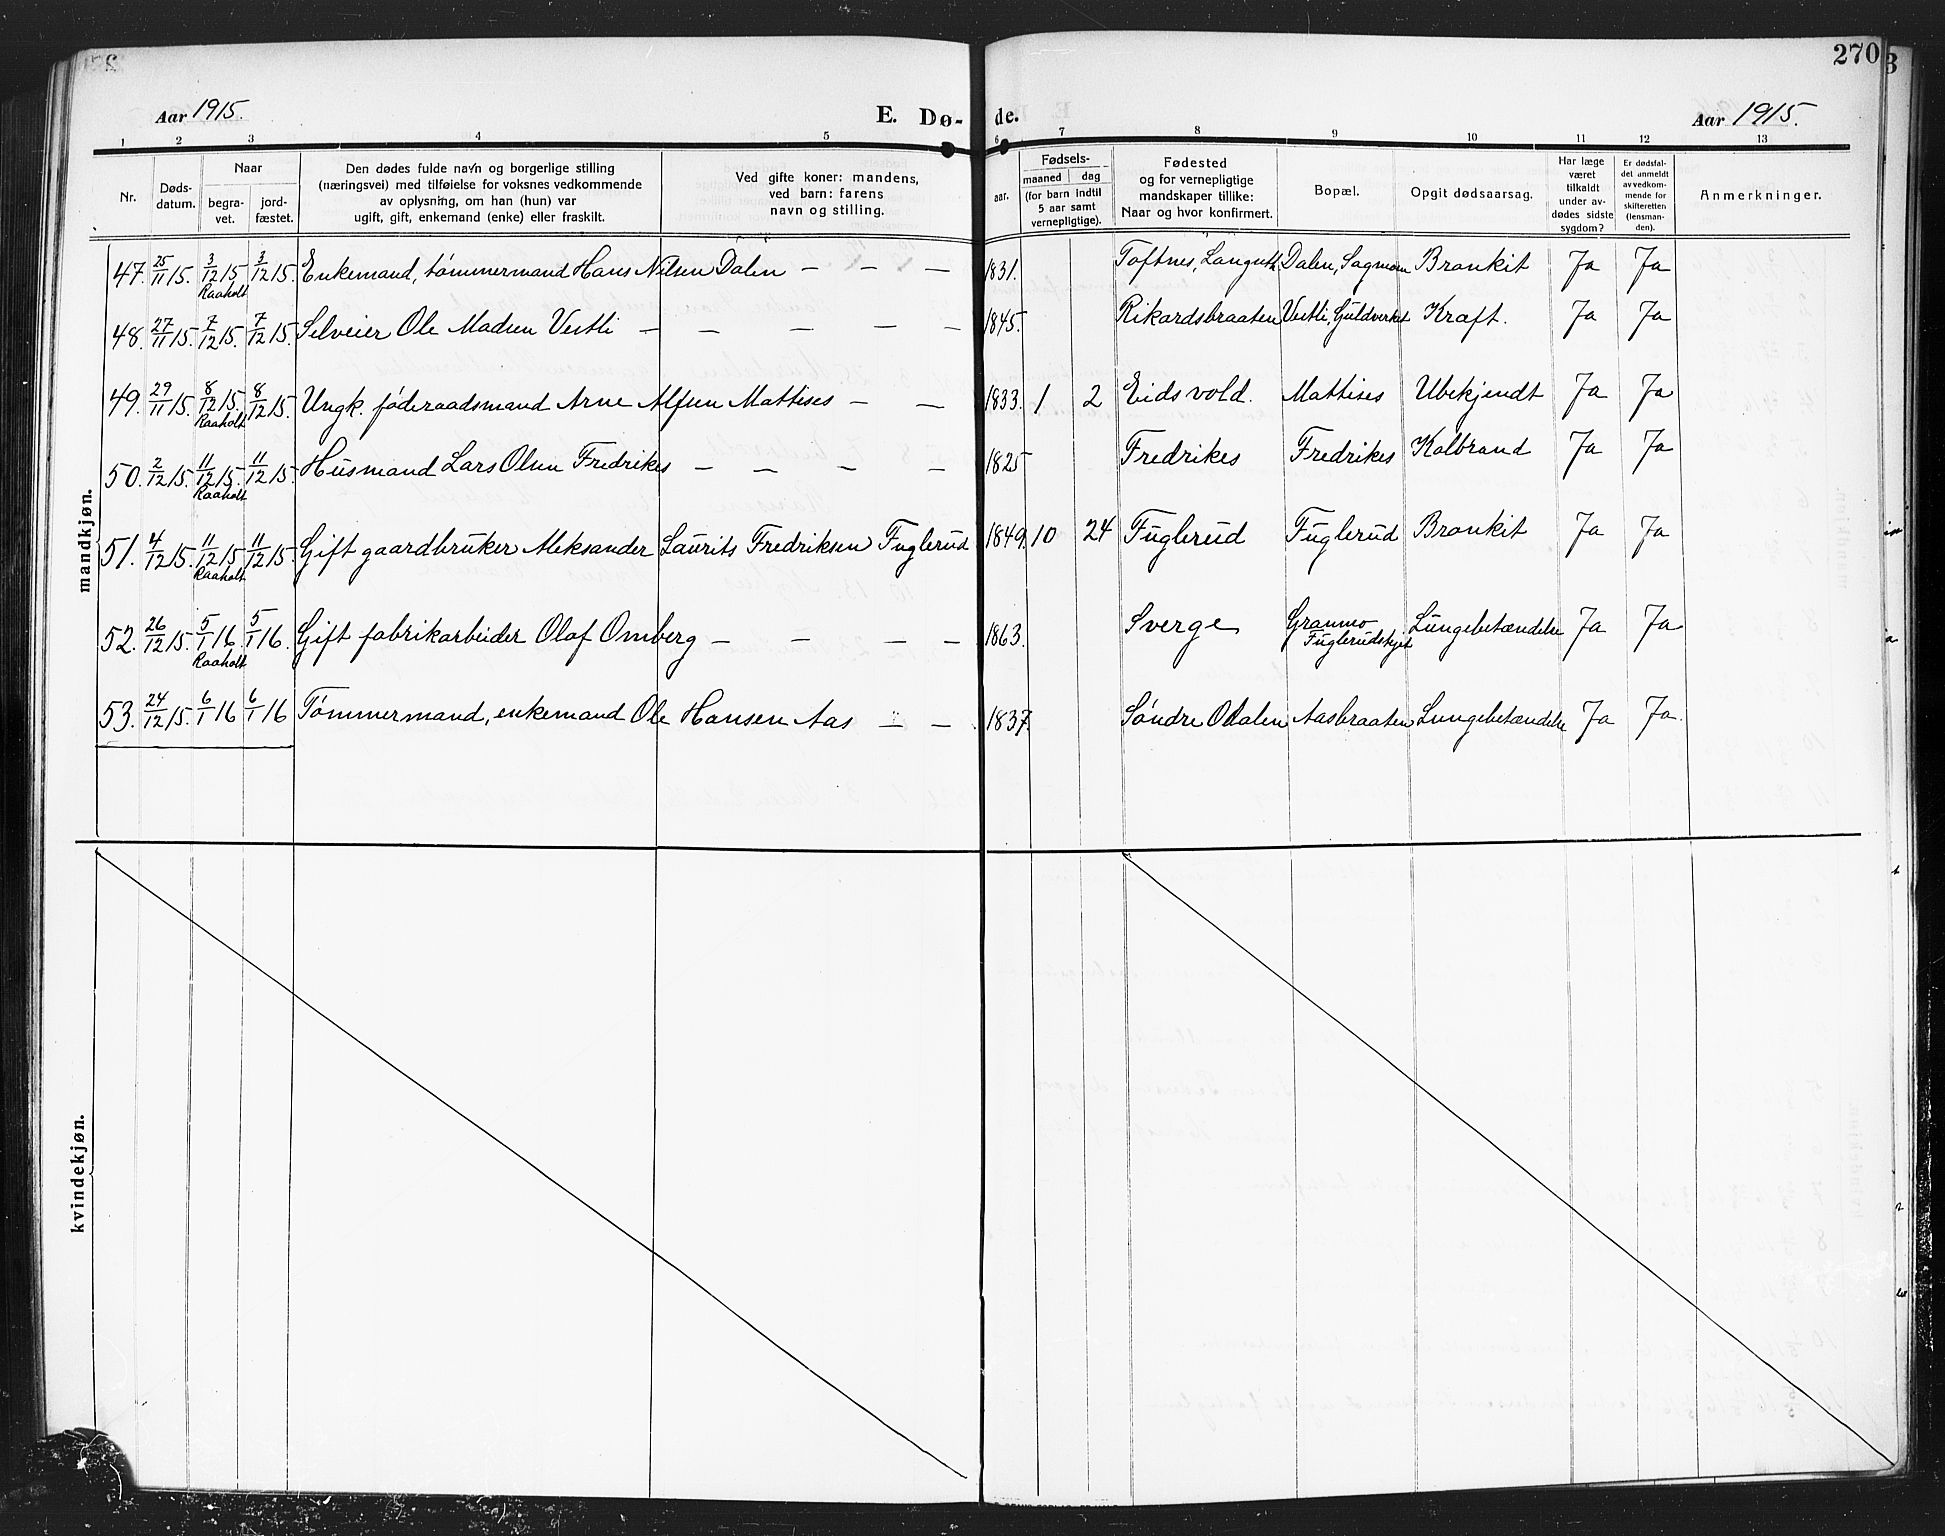 270
Aar 1915. E. Dø- de. Aar 1915.
1 2 3 4 5 6 7 8 9 10 11 12 13
Nr. Døds-datum. Naar begra-vet. jord-fæstet. Den dødes fulde navn og borgerlige stilling (næringsvei) med tilføielse for voksnes vedkommende av oplysning, om han (hun) var ugift, gift, enkemand (enke) eller fraskilt. Ved gifte koner: mandens, ved barn: farens navn og stilling. aar. Fødsels- maaned dag (for barn indtil 5 aar samt vernepligtige). Fødested og for vernepligtige mandskaper tillike: Naar og hvor konfirmert. Bopæl. Opgit dødsaarsag. Har læge været tilkaldt under av-dødes sidste sygdom? Er dødsfal-det anmeldt av vedkom-mende for skifteretten (lensman-den). Anmerkninger.
mandkjøn.
47. 25/11 15. 3/12 15. Raaholt 3/12 15. Enkemand, tømmermand Hans Nilsen Dalen — — — 1831. Toftnes, Dalen, Sagmoen Bronkit Ja Ja
48. 27/11 15. 7/12 15. 7/12 15. Selveier Ole Madsen Vestli — — — — — 1845. Rikardsbraaten Vestli, Guldverket Kræft. Ja Ja
49. 29/11 15. 8/12 15. Raaholt 8/12 15. Ungk. føderaadsmand Arne Alfsen Mattises — — 1833. 1 2 Eidsvold. Mattises Ubekjendt Ja Ja
50. 2/12 15. 11/12 15. Raaholt 11/12 15. Husmand Lars Olsen Fredrikes — — — — — 1825 Fredrikes Fredrikes Kolbrand Ja Ja
51. 4/12 15. 11/12 15 Raaholt 11/12 15. Gift gaardbruker Aleksander Laurits Fredriksen Fuglerud 1849. 10 24 Fuglerud Fuglerud Bronkit Ja Ja
52. 26/12 15. 5/1 16. Raaholt 5/1 16. Gift fabrikarbeider Olaf Omberg — — — — 1863. Sverge Granmo Fuglerudskjet Lungebetændelse Ja Ja
53. 24/12 15. 6/1 16 6/1 16 Tømmermand, enkemand Ole Hansen Aas — — 1837. Søndre Odalen Aasbraaten Lungebetændelse Ja Ja.
kvindekjøn.